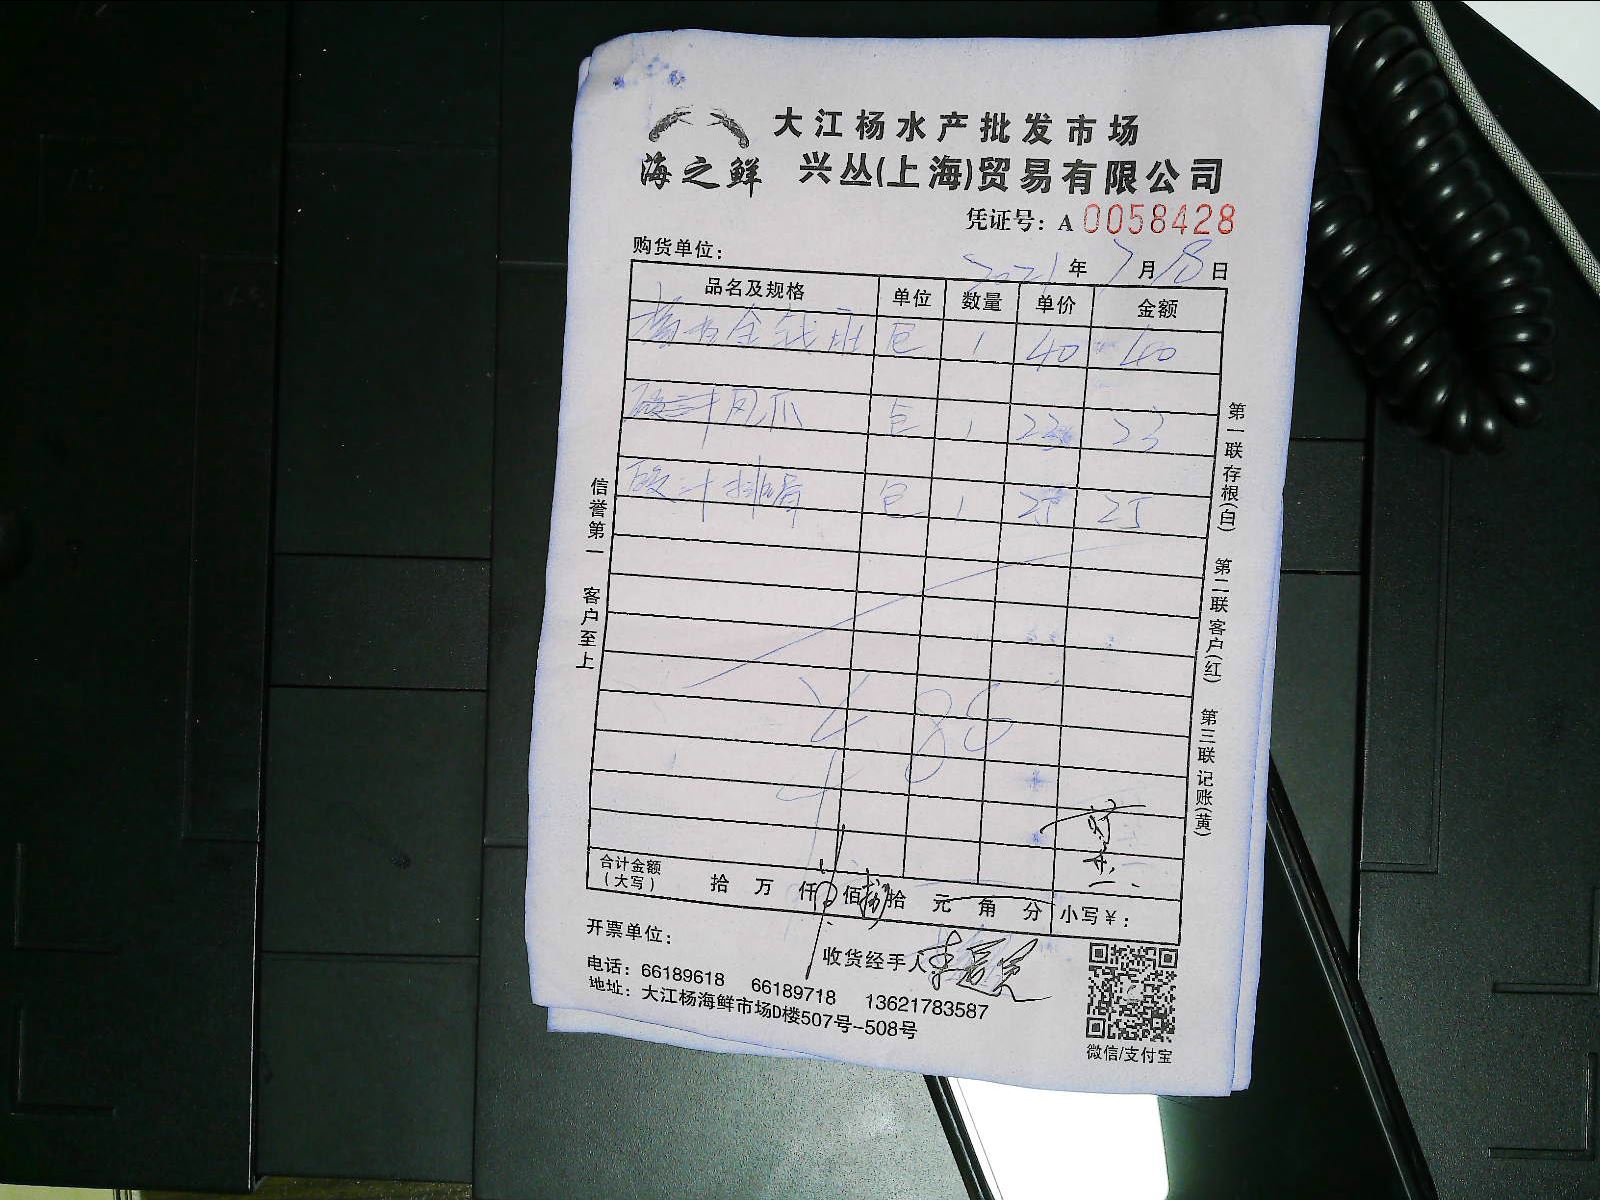 大江杨水产批发市场
海之鲜 兴丛(上海)贸易有限公司
凭证号：A 0058428
购货单位：
2021年7月18日
品名及规格 单位 数量 单价 金额
金钱肚 包 1 40 40
豉汁凤爪 包 1 23 23
豉汁排骨 包 1 25 25
¥88
合计金额(大写) 拾 万 仟 佰 捌拾 元 角 分 小写￥：
开票单位：
收货经手人
电话：66189618 66189718 13621783587
地址：大江杨海鲜市场D楼507号--508号
微信/支付宝
信誉第一 客户至上
第一联存根(白) 第二联客户(红) 第三联记账(黄)